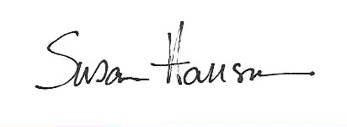 Susan Hanson